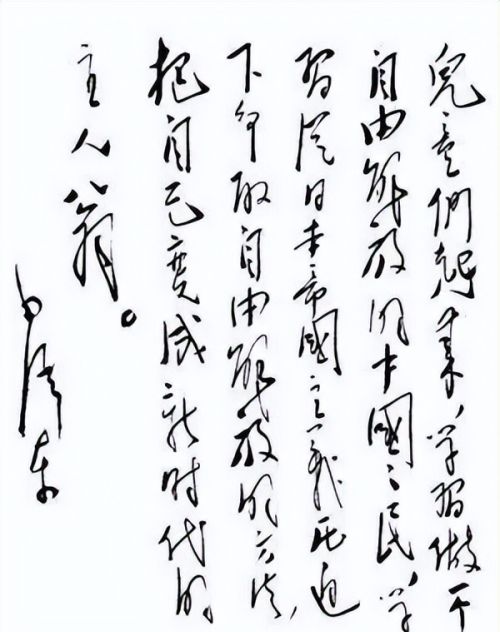 兒童們起来,学習做一个
自由解放的中國々民,学
習從日本帝國主義压迫
下争取自由解放的方法,
把自己变成新时代的
主人翁。
毛澤东